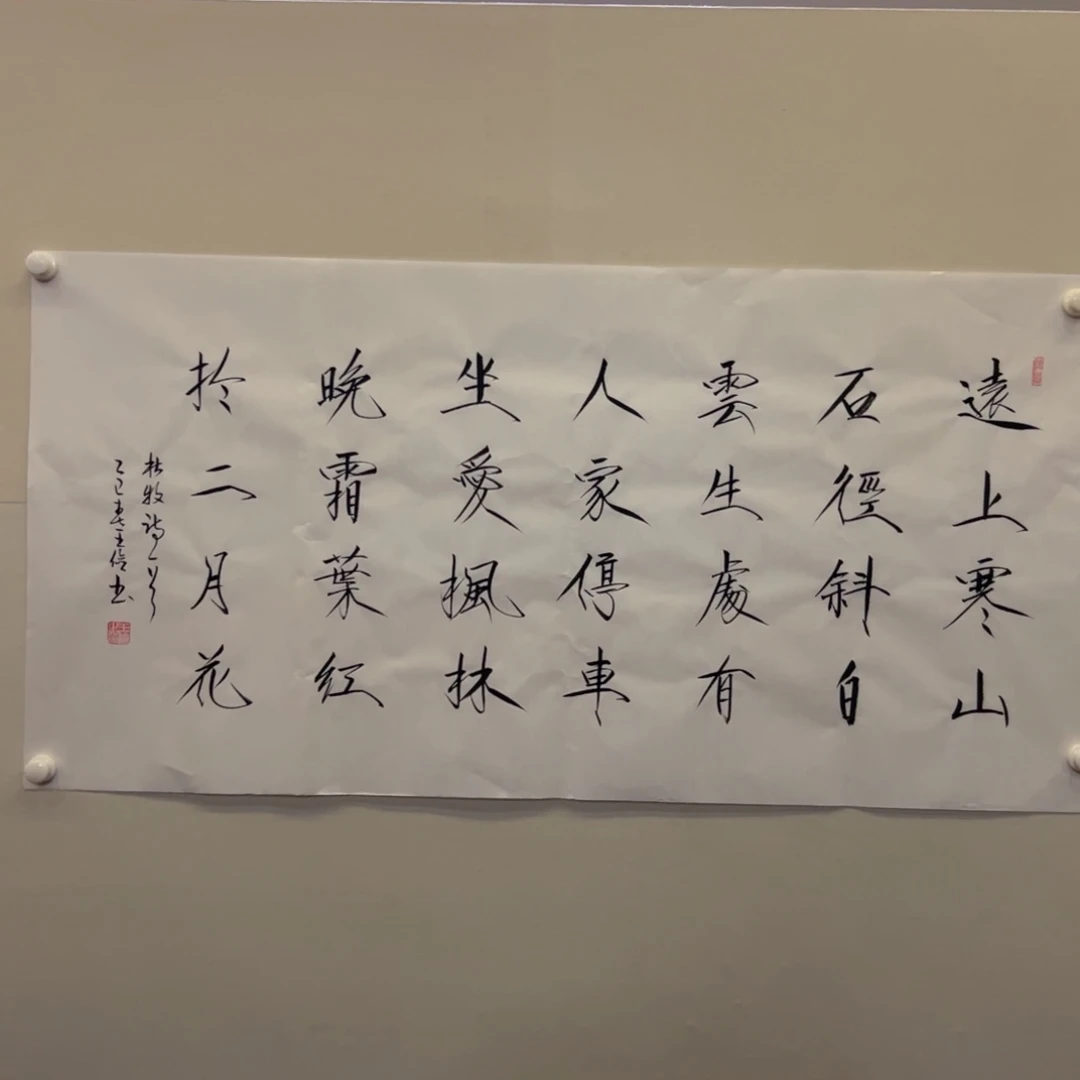 遠上寒山
石徑斜白
雲生處有
人家停車
坐愛楓林
晚霜葉紅
於二月花
杜牧詩一首
乙巳春王信书